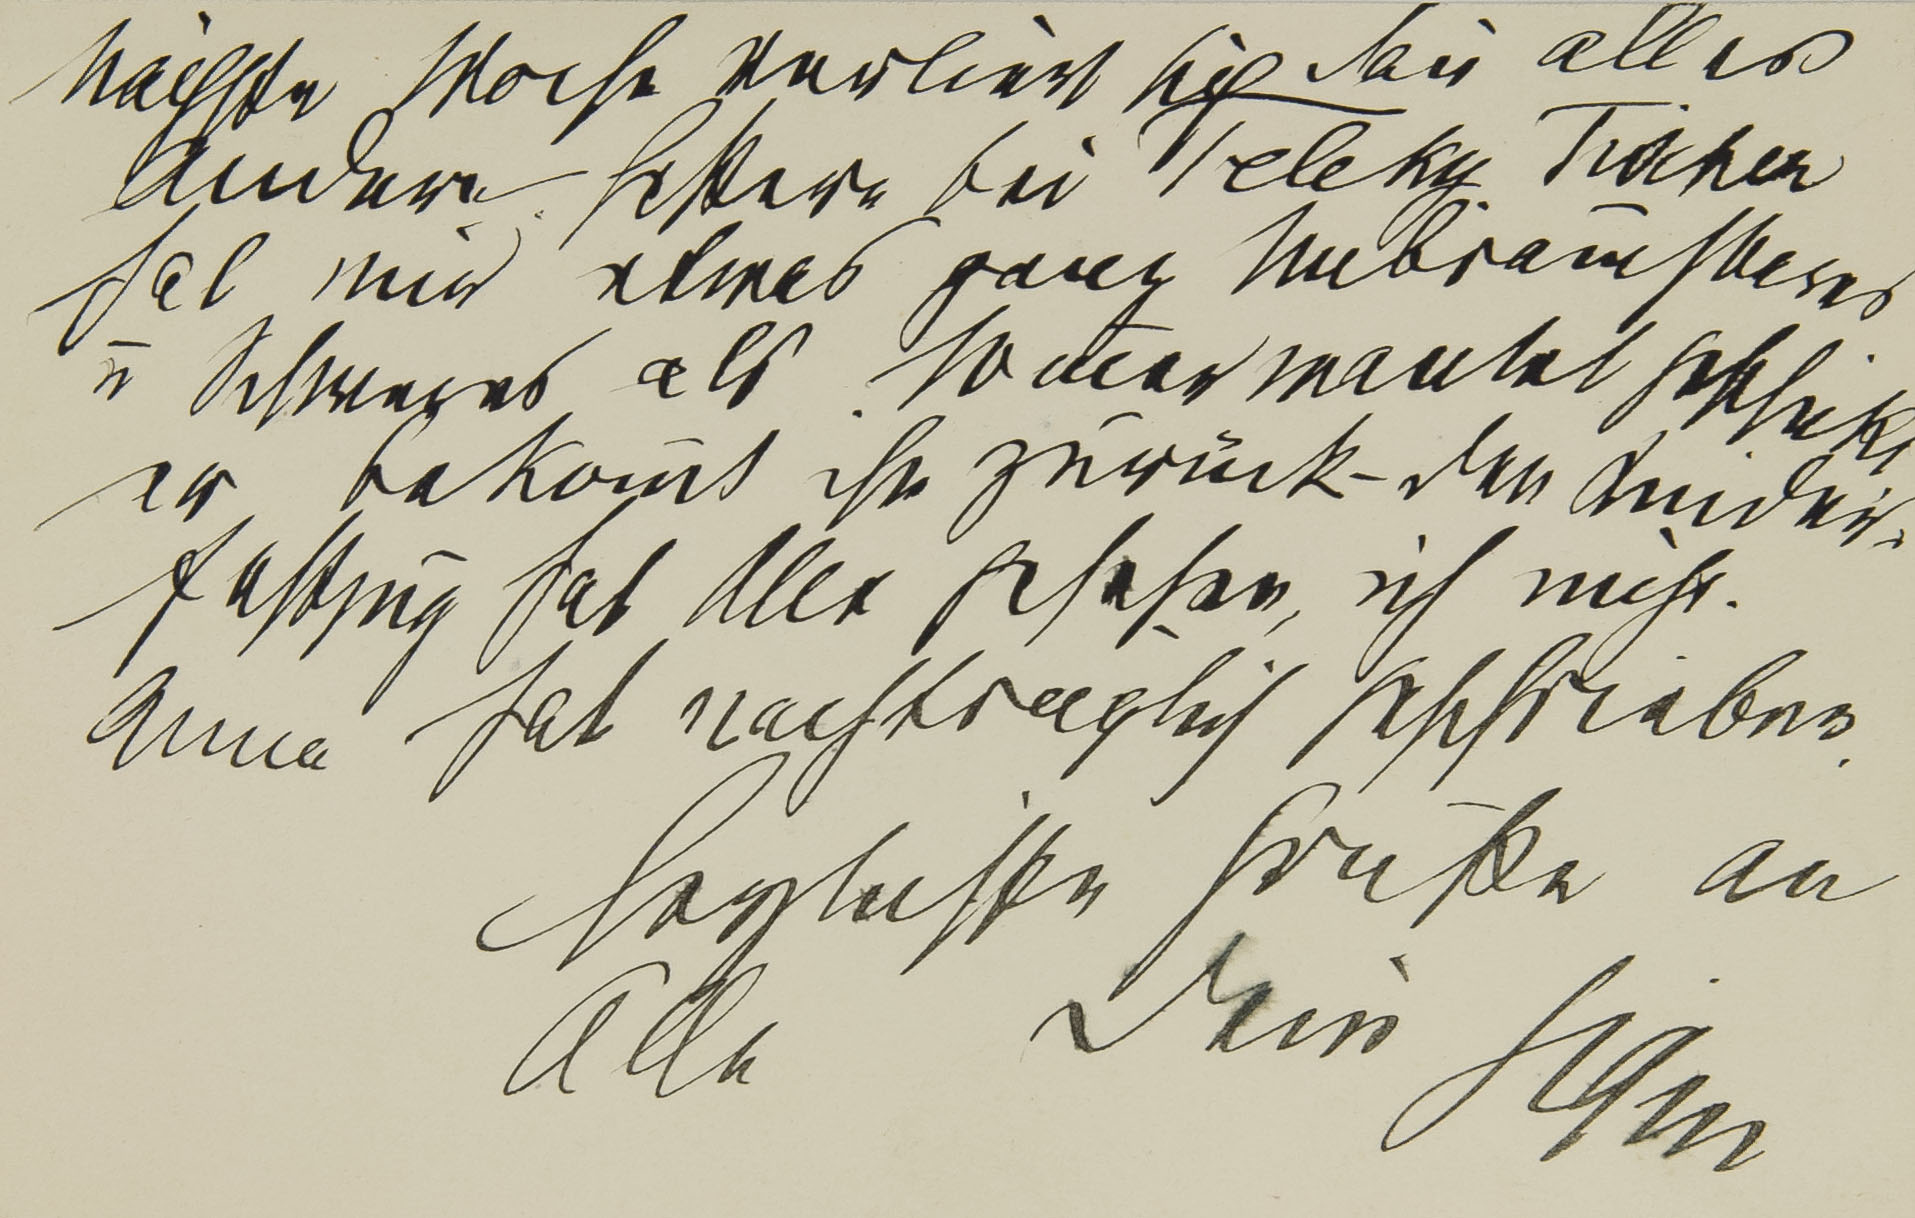 nächste Woche verliert sich dan alles
Andere. Gestern bei Teleky. Tischer
hat mir etwas ganz Unbrauchbares
ū Schweres als Som̄ermantel geschickt
er bekom̄t ihn zurück - den Kinder-
festzug hat Alle gesehen, ich nicht.
Anna hat nachträglich geschrieben.
Herzlichste Grüße an
Alle Dein